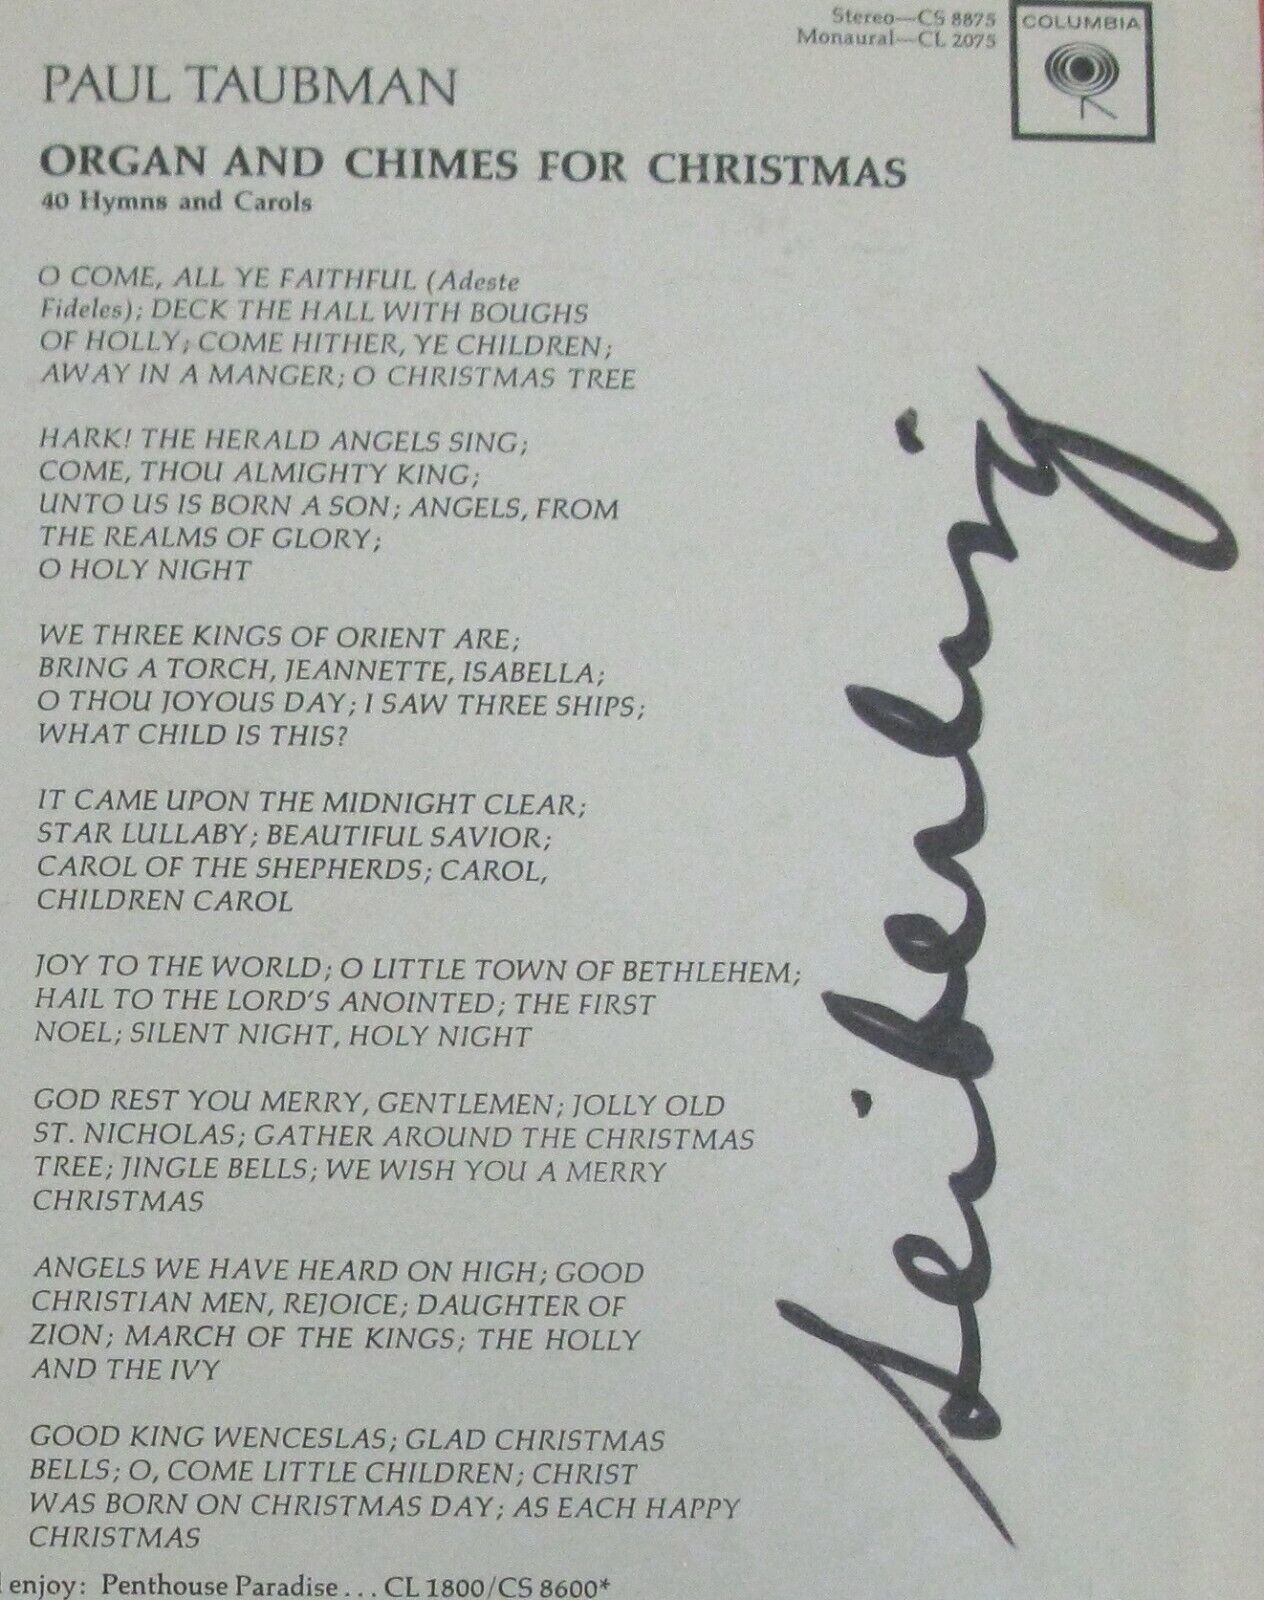 Stereo—CS 8875
Monaural—CL 2075
COLUMBIA
PAUL TAUBMAN
ORGAN AND CHIMES FOR CHRISTMAS
40 Hymns and Carols
O COME, ALL YE FAITHFUL (Adeste
Fideles); DECK THE HALL WITH BOUGHS
OF HOLLY; COME HITHER, YE CHILDREN;
AWAY IN A MANGER; O CHRISTMAS TREE
HARK! THE HERALD ANGELS SING;
COME, THOU ALMIGHTY KING;
UNTO US IS BORN A SON; ANGELS, FROM
THE REALMS OF GLORY;
O HOLY NIGHT
WE THREE KINGS OF ORIENT ARE;
BRING A TORCH, JEANNETTE, ISABELLA;
O THOU JOYOUS DAY; I SAW THREE SHIPS;
WHAT CHILD IS THIS?
IT CAME UPON THE MIDNIGHT CLEAR;
STAR LULLABY; BEAUTIFUL SAVIOR;
CAROL OF THE SHEPHERDS; CAROL,
CHILDREN CAROL
JOY TO THE WORLD; O LITTLE TOWN OF BETHLEHEM;
HAIL TO THE LORD'S ANOINTED; THE FIRST
NOEL; SILENT NIGHT, HOLY NIGHT
GOD REST YOU MERRY, GENTLEMEN; JOLLY OLD
ST. NICHOLAS; GATHER AROUND THE CHRISTMAS
TREE; JINGLE BELLS; WE WISH YOU A MERRY
CHRISTMAS
ANGELS WE HAVE HEARD ON HIGH; GOOD
CHRISTIAN MEN, REJOICE; DAUGHTER OF
ZION; MARCH OF THE KINGS; THE HOLLY
AND THE IVY
GOOD KING WENCESLAS; GLAD CHRISTMAS
BELLS; O, COME LITTLE CHILDREN; CHRIST
WAS BORN ON CHRISTMAS DAY; AS EACH HAPPY
CHRISTMAS
enjoy: Penthouse Paradise . . . CL 1800/CS 8600*